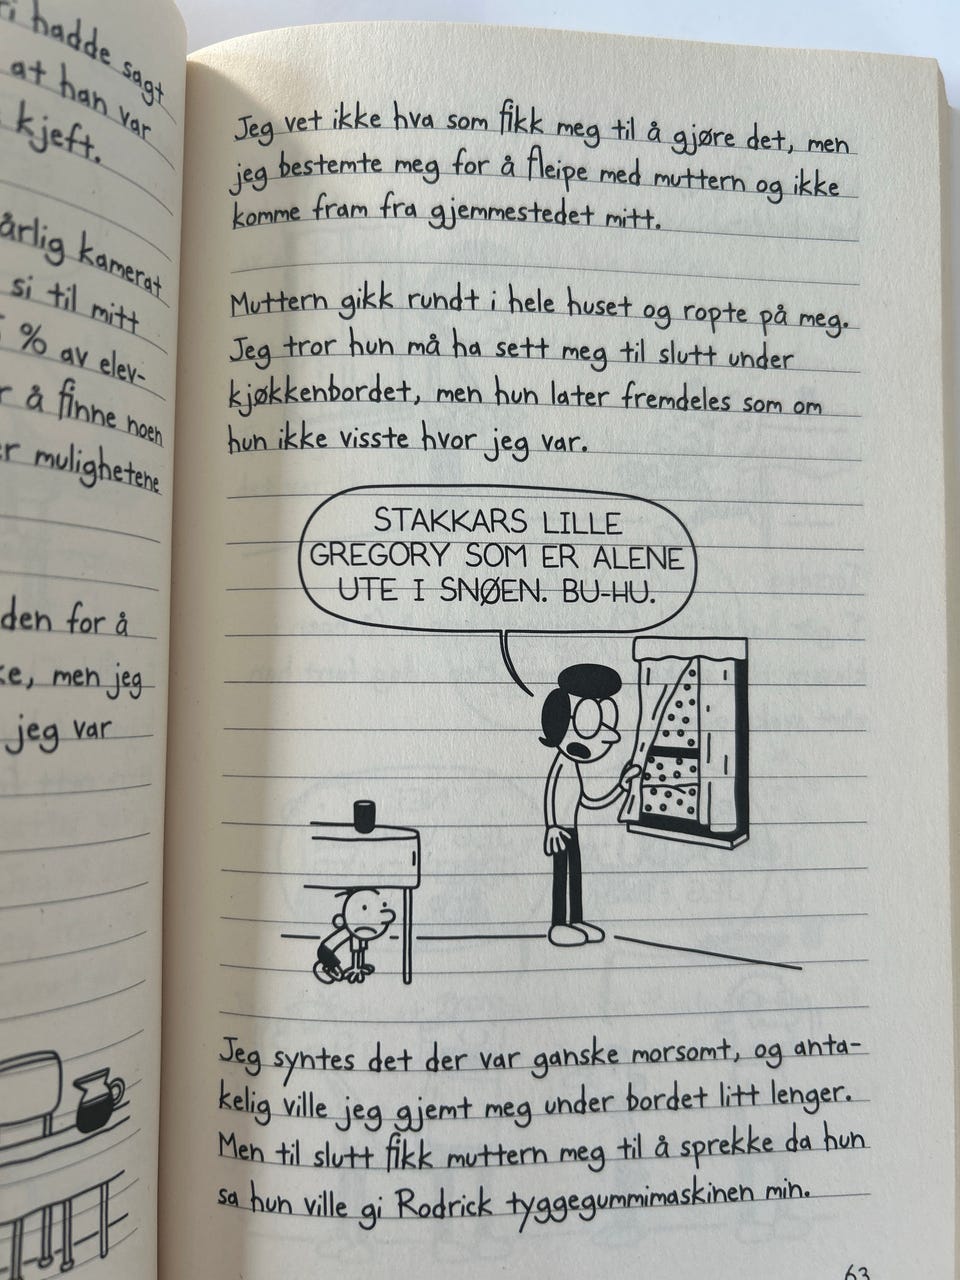 i hadde sagt
at han var
kjeft.
årlig kamerat
si til mitt
% av elev-
r å finne noen
er mulighetene
den for å
ke, men jeg
jeg var
Jeg vet ikke hva som fikk meg til å gjøre det, men
jeg bestemte meg for å fleipe med muttern og ikke
komme fram fra gjemmestedet mitt.
Muttern gikk rundt i hele huset og ropte på meg.
Jeg tror hun må ha sett meg til slutt under
kjøkkenbordet, men hun later fremdeles som om
hun ikke visste hvor jeg var.
STAKKARS LILLE
GREGORY SOM ER ALENE
UTE I SNØEN. BU-HU.
Jeg syntes det der var ganske morsomt, og anta-
kelig ville jeg gjemt meg under bordet litt lenger.
Men til slutt fikk muttern meg til å sprekke da hun
sa hun ville gi Rodrick tyggegummimaskinen min.
63